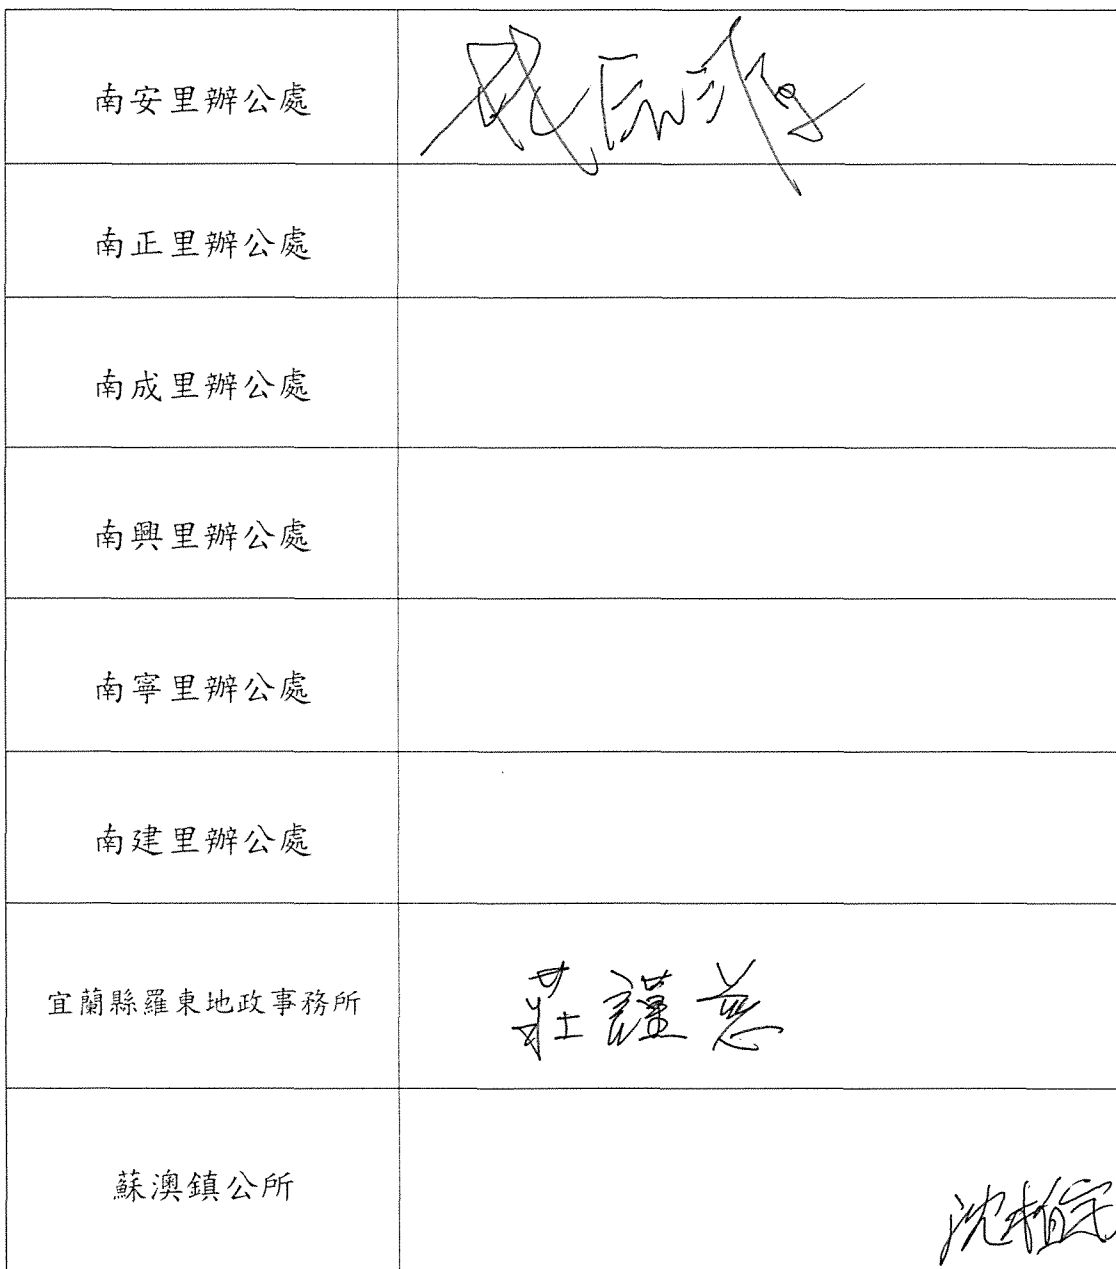 南安里辦公處
南正里辦公處
南成里辦公處
南興里辦公處
南寧里辦公處
南建里辦公處
宜蘭縣羅東地政事務所 莊謹慈
蘇澳鎮公所